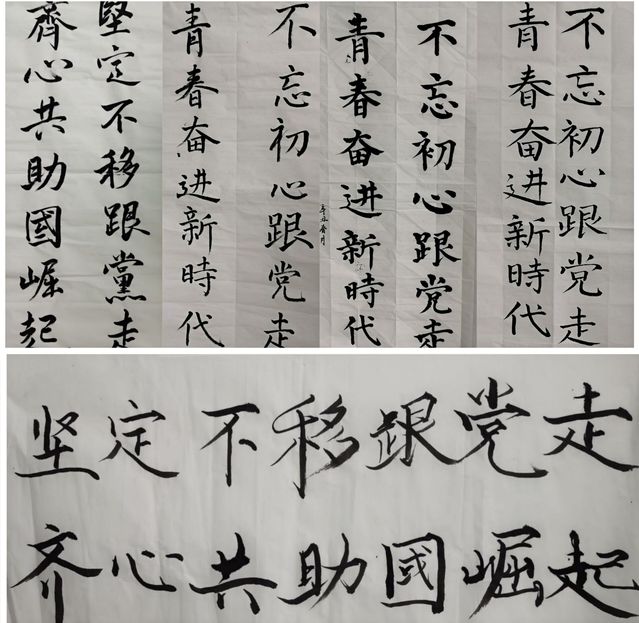 堅定不移跟黨走
齊心共助國崛起
不忘初心跟党走
青春奋进新時代
不忘初心跟党走
青春奋进新時代
不忘初心跟党走
青春奋进新時代
坚定不移跟党走
齐心共助國崛起